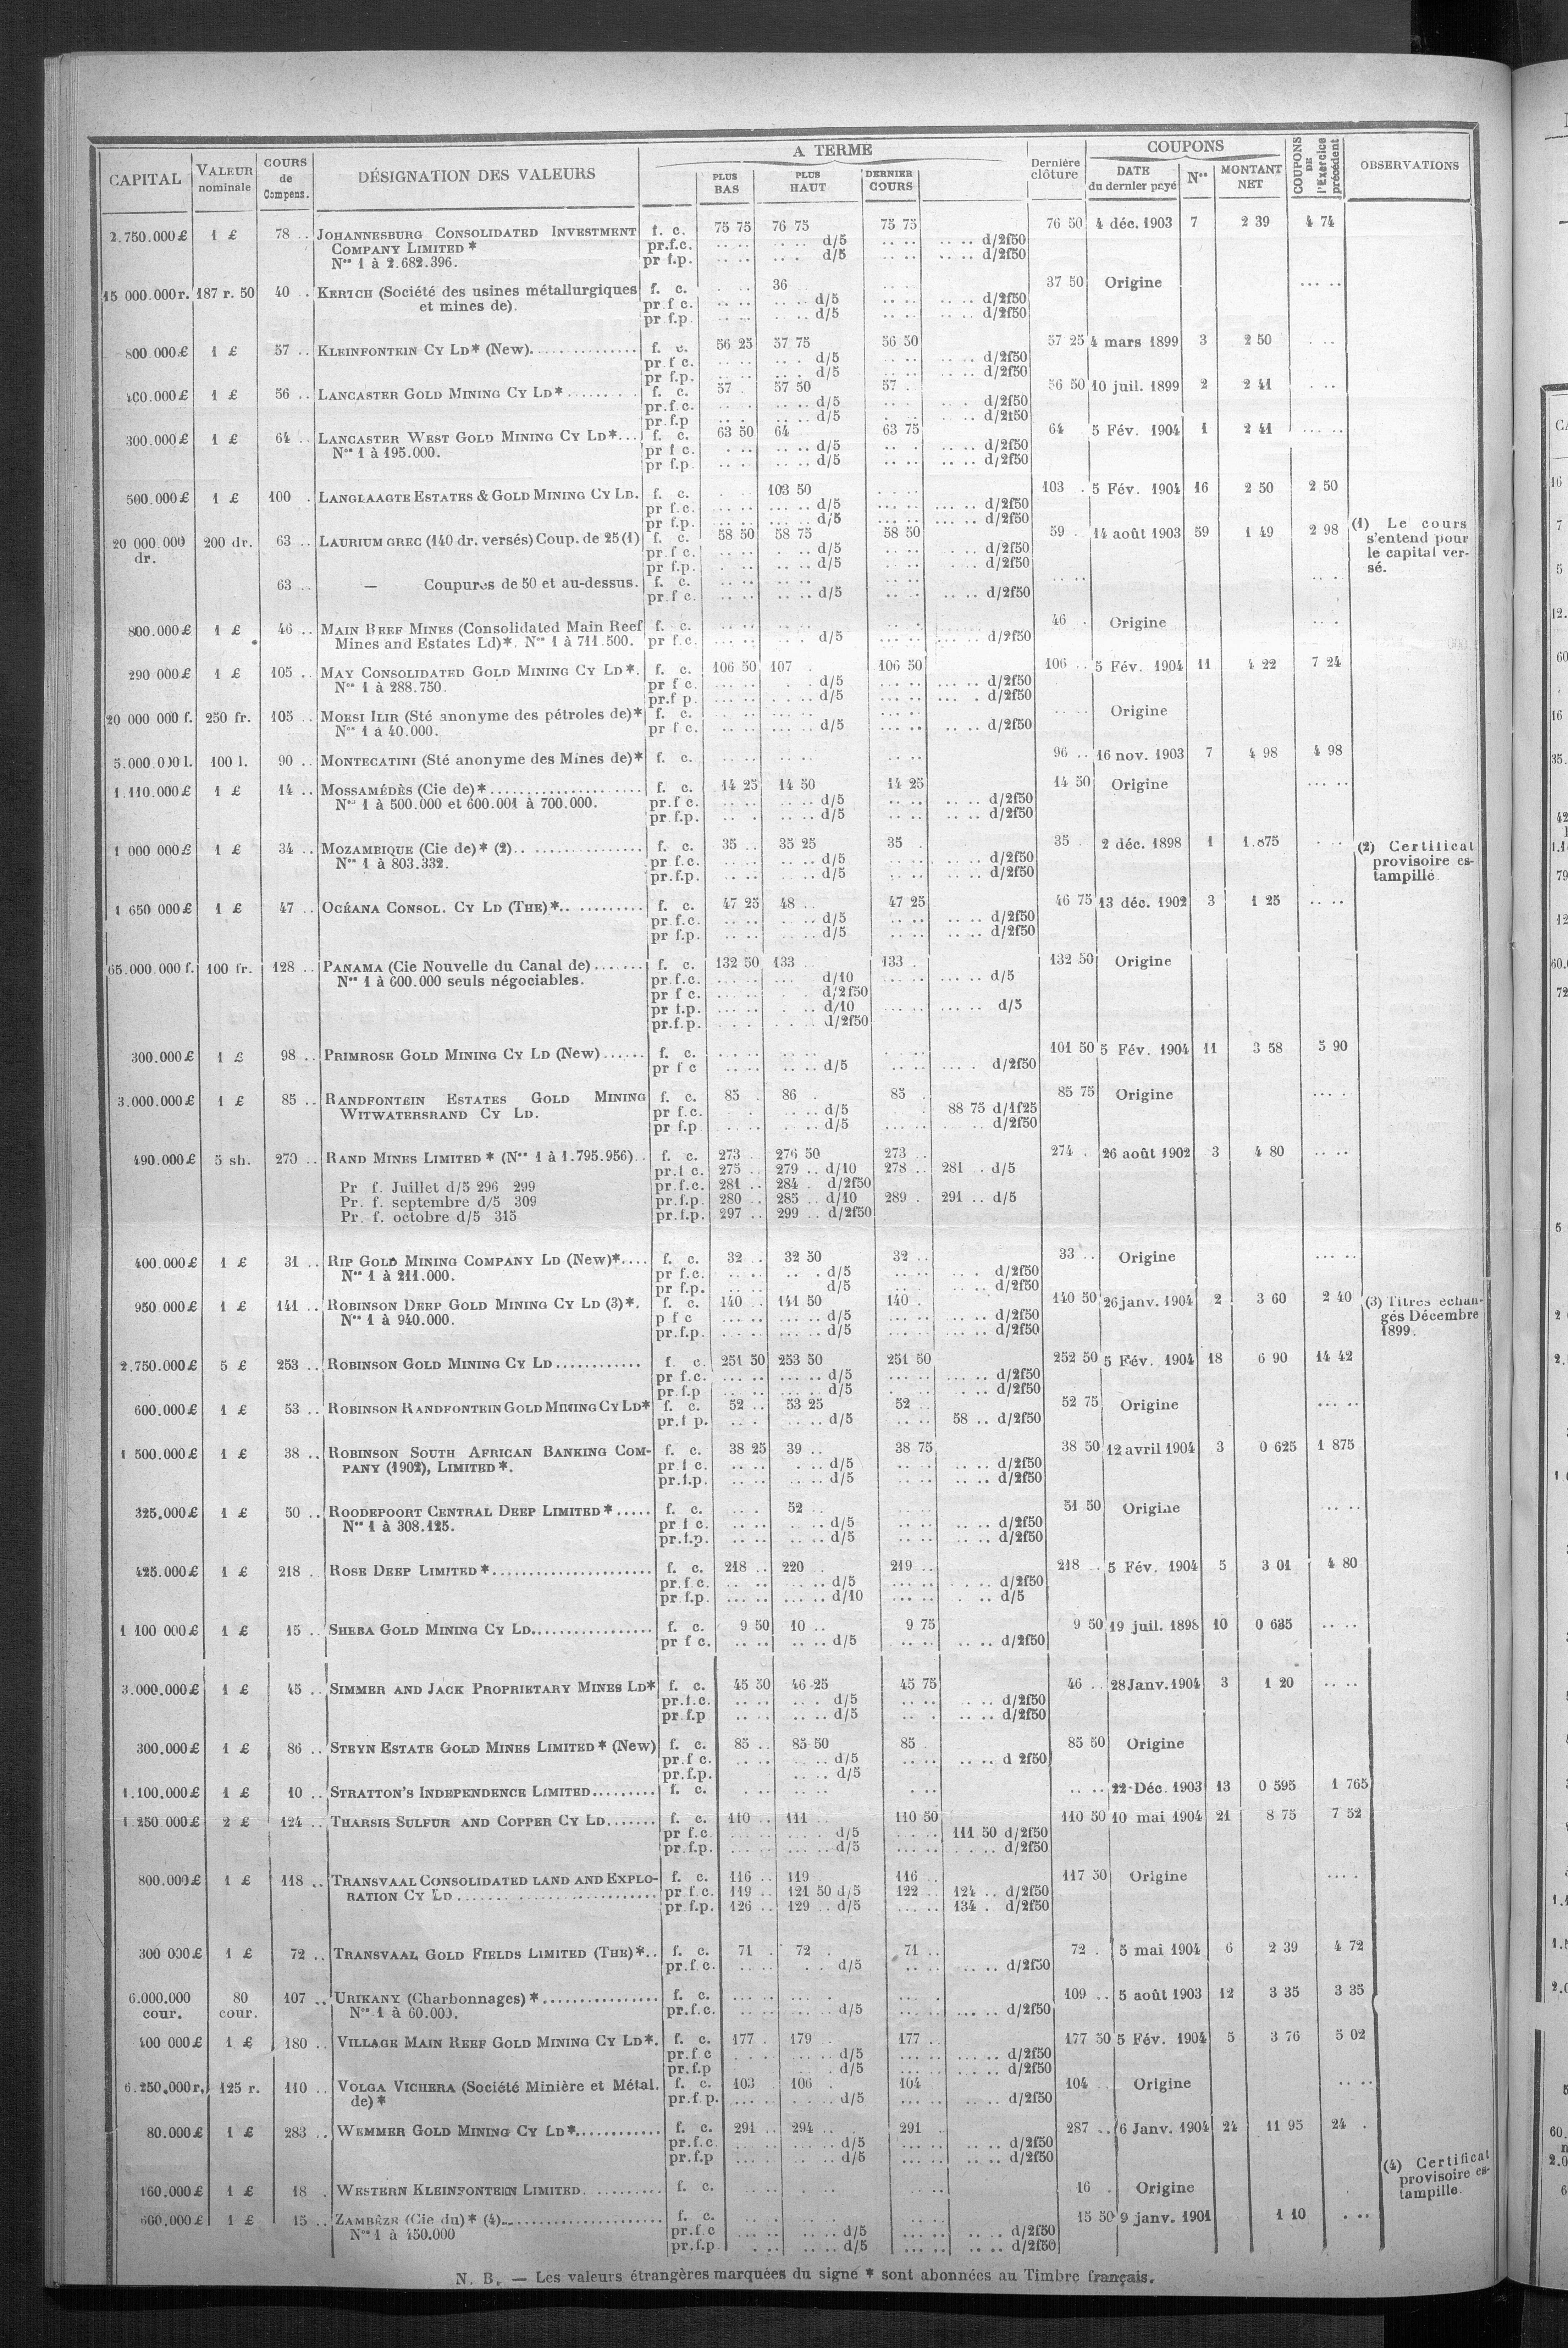 CAPITAL VALEUR nominale COURS de Compens. DÉSIGNATION DES VALEURS A TERME PLUS BAS PLUS HAUT DERNIER COURS Dernière clôture COUPONS DATE du dernier payé Nos MONTANT NET COUPONS DE l'Exercice précédent OBSERVATIONS
2.750.000 £ 1 £ 78 .. JOHANNESBURG CONSOLIDATED INVESTMENT f. c. 75 75 76 75 75 75 76 50 4 déc. 1903 7 2 39 4 74
COMPANY LIMITED * pr.f.c. .. .. .. .. d/5 .. .. .. .. d/2f50
Nos 1 à 2.682.396. pr f.p. .. .. .. . d/5 .. .. .. .. d/2f50
15 000.000 r. 187 r. 50 40 .. KERTCH (Société des usines métallurgiques f. c. 36 37 50 Origine ... ..
et mines de). pr f c. .. .. .. .. d/5 .. .. .. .. d/2f50
pr f.p. .. .. .. .. d/5 .. .. .. .. d/2f50
800 000 £ 1 £ 57 .. KLEINFONTEIN CY LD* (New)............... f. c. 56 25 57 75 56 50 57 25 4 mars 1899 3 2 50 . ..
pr f c. .. .. .. . d/5 .. .. .. .. d/2f50
pr f.p. .. .. .. . d/5 .. .. .. .. d/2f50
400.000 £ 1 £ 56 .. LANCASTER GOLD MINING CY LD*......... f. c. 57 . 57 50 57 . 56 50 10 juil. 1899 2 2 41 . ..
pr.f c. .. . .. .. d/5 .. .. .. .. d/2f50
pr f.p .. . .. .. d/5 .. .. .. .. d/2f50
300.000 £ 1 £ 64 .. LANCASTER WEST GOLD MINING CY LD*... f. c. 63 50 64 63 75 64 5 Fév. 1904 1 2 41 ... ..
Nos 1 à 195.000. pr f c. . .. .. .. d/5 .. . .. .. d/2f50
pr f.p. .. .. .. .. d/5 .. .. .. .. d/2f50
500.000 £ 1 £ 100 . LANGLAAGTE ESTATES & GOLD MINING CY LD. f. c. 103 50 103 . 5 Fév. 1904 16 2 50 2 50
pr f.c. ... .. ... .. d/5 ... .. ... .. d/2f50
pr f.p. ... .. ... .. d/5 ... .. ... .. d/2f50
20 000 000 200 dr. 63 .. LAURIUM GREC (140 dr. versés) Coup. de 25 (1) f. c. 58 50 58 75 58 50 59 . 14 août 1903 59 1 49 2 98 (1) Le cours
dr. pr.f c. .. .. . .. d/5 .. .. . .. d/2f50 s'entend pour
pr f.p. .. .. .. .. d/5 .. .. .. .. d/2f50 le capital ver-
63 .. — Coupures de 50 et au-dessus. f. c. .. .. .. .. .. .. .. .. .. . sé.
pr.f c. .. .. .. .. d/5 .. .. .. .. d/2f50
800.000 £ 1 £ 46 .. MAIN REEF MINES (Consolidated Main Reef f. c. .. .. .. .. .. .. 46 . Origine .. .
Mines and Estates Ld)*. Nos 1 à 711.500. pr f.c. ... .. . . d/5 ... .. ... .. d/2f50
290 000 £ 1 £ 105 .. MAY CONSOLIDATED GOLD MINING CY LD*. f. c. 106 50 107 . 106 50 106 .. 5 Fév. 1904 11 4 22 7 24
Nos 1 à 288.750. pr f c. ... .. . . d/5 ... .. ... .. d/2f50
pr.f p. ... .. .. .. d/5 ... .. ... . d/2f50
20 000 000 f. 250 fr. 105 .. MOESI ILIR (Sté anonyme des pétroles de)* f. c. .. .. ... .. ... .. .. .. Origine
Nos 1 à 40.000. pr f c. ... .. ... .. d/5 ... .. ... .. d/2f50
5.000.000 l. 100 l. 90 .. MONTECATINI (Sté anonyme des Mines de)* f. c. .. .. .. .. .. .. 96 .. 16 nov. 1903 7 4 98 4 98
1.110.000 £ 1 £ 14 .. MOSSAMÉDÈS (Cie de)*................... f. c. 14 25 14 50 14 25 14 50 Origine ... ..
Nos 1 à 500.000 et 600.001 à 700.000. pr.f c. .. .. .. .. d/5 .. .. .. .. d/2f50
pr.f.p. .. . .. .. d/5 .. .. .. .. d/2f50
1 000 000 £ 1 £ 34 .. MOZAMBIQUE (Cie de)* (2).. .............. f. c. 35 .. 35 25 35 . 35 . 2 déc. 1898 1 1.875 . .. (2) Certificat
Nos 1 à 803.332. pr f.c. .. .. .. .. d/5 .. .. .. .. d/2f50 provisoire es-
pr.f.p. .. .. .. .. d/5 .. .. .. .. d/2f50 tampillé.
1 650 000 £ 1 £ 47 .. OCÉANA CONSOL. CY LD (THE)*.. ......... f. c. 47 25 48 .. 47 25 46 75 13 déc. 1902 3 1 25 .. ..
pr.f.c. .. .. .. .. d/5 .. .. .. .. d/2f50
pr f.p. .. .. .. .. d/5 .. .. .. .. d/2f50
65.000.000 f. 100 fr. 128 .. PANAMA (Cie Nouvelle du Canal de)....... f. c. 132 50 133 133 . 132 50 Origine
Nos 1 à 600.000 seuls négociables. pr.f.c. ... .. ... d/10 ... .. ... .. d/5
pr f c. ... .. . . d/2f50
pr f.p. ... .. . .. d/10 ... .. ... .. d/5
pr.f.p. .. . . .. d/2f50
300.000 £ 1 £ 98 .. PRIMROSE GOLD MINING CY LD (New)...... f. c. .. .. .. .. .. .. 101 50 5 Fév. 1904 11 3 58 5 90
pr f c .. .. .. .. d/5 .. .. ... . d/2f50
3.000.000 £ 1 £ 85 .. RANDFONTEIN ESTATES GOLD MINING f. c. 85 . 86 . 85 . 85 75 Origine ... .
WITWATERSRAND CY LD. pr f.c. . . .. .. d/5 .. . 88 75 d/1f25
pr f.p .. .. . .. d/5 .. .. .. .. d/2f50
490.000 £ 5 sh. 270 .. RAND MINES LIMITED * (Nos 1 à 1.795.956).. f. c. 273 .. 276 50 273 .. 274 . 26 août 1902 3 4 80 .. ..
pr.f c. 275 .. 279 .. d/10 278 .. 281 .. d/5
Pr f. Juillet d/5 296 299 pr.f.c. 281 .. 284 . d/2f50
Pr. f. septembre d/5 309 pr.f.p. 280 .. 285 .. d/10 289 . 291 .. d/5
Pr. f. octobre d/5 315 pr.f.p. 297 .. 299 .. d/2f50
400.000 £ 1 £ 31 .. RIP GOLD MINING COMPANY LD (New)*.... f. c. 32 .. 32 50 32 .. 33 .. Origine ... ..
Nos 1 à 211.000. pr f.c. .. .. .. . d/5 .. .. .. . d/2f50
pr f.p. .. . d/5 .. .. .. .. d/2f50
950 000 £ 1 £ 141 .. ROBINSON DEEP GOLD MINING CY LD (3)*. f. c. 140 .. 141 50 140 . 140 50 26 janv. 1904 2 3 60 2 40 (3) Titres échan-
Nos 1 à 940.000. p f c ... .. ... .. d/5 ... .. ... .. d/2f50 gés Décembre
pr.f.p. ... .. ... .. d/5 ... .. ... .. d/2f50 1899.
2.750.000 £ 5 £ 253 .. ROBINSON GOLD MINING CY LD............ f. c. 251 50 253 50 251 50 252 50 5 Fév. 1904 18 6 90 14 42
pr f.c. ... .. ... .. d/5 ... .. ... .. d/2f50
pr.f.p .. .. ... .. d/5 . .. .. .. d/2f50
600.000 £ 1 £ 53 .. ROBINSON RANDFONTEIN GOLD MINING CY LD* f. c. 52 .. 53 25 52 .. 52 75 Origine ... ..
pr.f p. .. . .. .. d/5 .. .. 58 .. d/2f50
1 500.000 £ 1 £ 38 .. ROBINSON SOUTH AFRICAN BANKING COM- f. c. 38 25 39 .. 38 75 38 50 12 avril 1904 3 0 625 1 875
PANY (1902), LIMITED *. pr f c. .. .. . .. d/5 .. . .. .. d/2f50
pr.f.p. .. .. .. .. d/5 .. .. .. .. d/2f50
325.000 £ 1 £ 50 .. ROODEPOORT CENTRAL DEEP LIMITED *..... f. c. .. . 52 .. 51 50 Origine ... ..
Nos 1 à 308.125. pr f c. .. .. . .. d/5 .. .. .. .. d/2f50
pr.f.p. .. .. .. .. d/5 .. .. .. .. d/2f50
425.000 £ 1 £ 218 . ROSE DEEP LIMITED *...................... f. c. 218 .. 220 219 .. 218 .. 5 Fév. 1904 5 3 01 4 80
pr.f c. .. .. .. .. d/5 ... .. . .. d/2f50
pr f.p. ... .. ... .. d/10 ... .. . .. d/5
1 100 000 £ 1 £ 15 .. SHEBA GOLD MINING CY LD................. f. c. 9 50 10 .. 9 75 9 50 19 juil. 1898 10 0 635 .. ..
pr f c. .. .. .. .. d/5 .. .. .. .. d/2f50
3.000.000 £ 1 £ 45 .. SIMMER AND JACK PROPRIETARY MINES LD* f. c. 45 50 46 25 45 75 46 .. 28 Janv. 1904 3 1 20 .. ..
pr.f.c. .. .. .. . d/5 .. .. .. .. d/2f50
pr f.p .. .. .. .. d/5 .. . .. .. d/2f50
300.000 £ 1 £ 86 .. STEYN ESTATE GOLD MINES LIMITED * (New) f. c. 85 .. 85 50 85 . 85 50 Origine
pr.f c. .. .. .. .. d/5 .. .. .. .. d 2f50
pr.f.p. .. .. d/5
1.100.000 £ 1 £ 10 .. STRATTON'S INDEPENDENCE LIMITED......... f. c. . .. .. .. .. . .. .. 22 Déc. 1903 13 0 595 1 765
1 250 000 £ 2 £ 124 .. THARSIS SULFUR AND COPPER CY LD....... f. c. 110 .. 111 .. 110 50 110 50 10 mai 1904 21 8 75 7 52
pr f.c. .. .. ... .. d/5 . .. .. 111 50 d/2f50
pr f.p. ... .. ... .. d/5 ... .. . .. d/2f50
800.000 £ 1 £ 118 .. TRANSVAAL CONSOLIDATED LAND AND EXPLO- f. c. 116 .. 119 116 .. 117 50 Origine ... .
RATION CY LD ....... ........................ pr f.c. 119 .. 121 50 d/5 122 .. 124 .. d/2f50
pr.f.p. 126 .. 129 .. d/5 ... .. 134 . d/2f50
300 000 £ 1 £ 72 .. TRANSVAAL GOLD FIELDS LIMITED (THE)*.. f. c. 71 . 72 . 71 .. 72 . 5 mai 1904 6 2 39 4 72
pr.f.c. .. .. . . d/5 .. .. .. .. d/2f50
6.000.000 80 107 .. URIKANY (Charbonnages) *................ f. c. ... .. ... . ... . 109 .. 5 août 1903 12 3 35 3 35
cour. cour. Nos 1 à 60.000. pr.f.c. ... .. ... .. d/5 ... .. ... .. d/2f50
400 000 £ 1 £ 180 .. VILLAGE MAIN REEF GOLD MINING CY LD*. f. c. 177 . 179 . 177 .. 177 50 5 Fév. 1904 5 3 76 5 02
pr.f c . .. . ... .. d/5 ... .. ... .. d/2f50
pr.f.p .. . . d/5 ... .. ... .. d/2f50
6.250.000 r. 125 r. 110 .. VOLGA VICHERA (Société Minière et Métal. f. c. 103 106 . 104 104 .. Origine .. ..
de) * pr.f.p. ... .. . .. d/5 ... .. d/2f50
80.000 £ 1 £ 283 .. WEMMER GOLD MINING CY LD*............ f. c. 291 .. 294 .. 291 . 287 .. 6 Janv. 1904 24 11 95 24 .
pr.f.c. ... .. ... .. d/5 ... .. .. .. d/2f50
pr.f.p ... .. ... .. d/5 ... .. ... .. d/2f50 (4) Certificat
160.000 £ 1 £ 18 . WESTERN KLEINFONTEIN LIMITED........... f. c. .. .. .. .. .. .. 16 . Origine provisoire es-
600.000 £ 1 £ 15 .. ZAMBÈZE (Cie du)* (4)...................... f. c. .. . .. .. .. .. 15 50 9 janv. 1901 1 10 . .. tampille.
Nos 1 à 450.000 pr.f.c ... .. ... .. d/5 ... .. .. .. d/2f50
pr.f.p . .. .. .. d/5 ... .. .. .. d/2f50
N. B. — Les valeurs étrangères marquées du signe * sont abonnées au Timbre français.